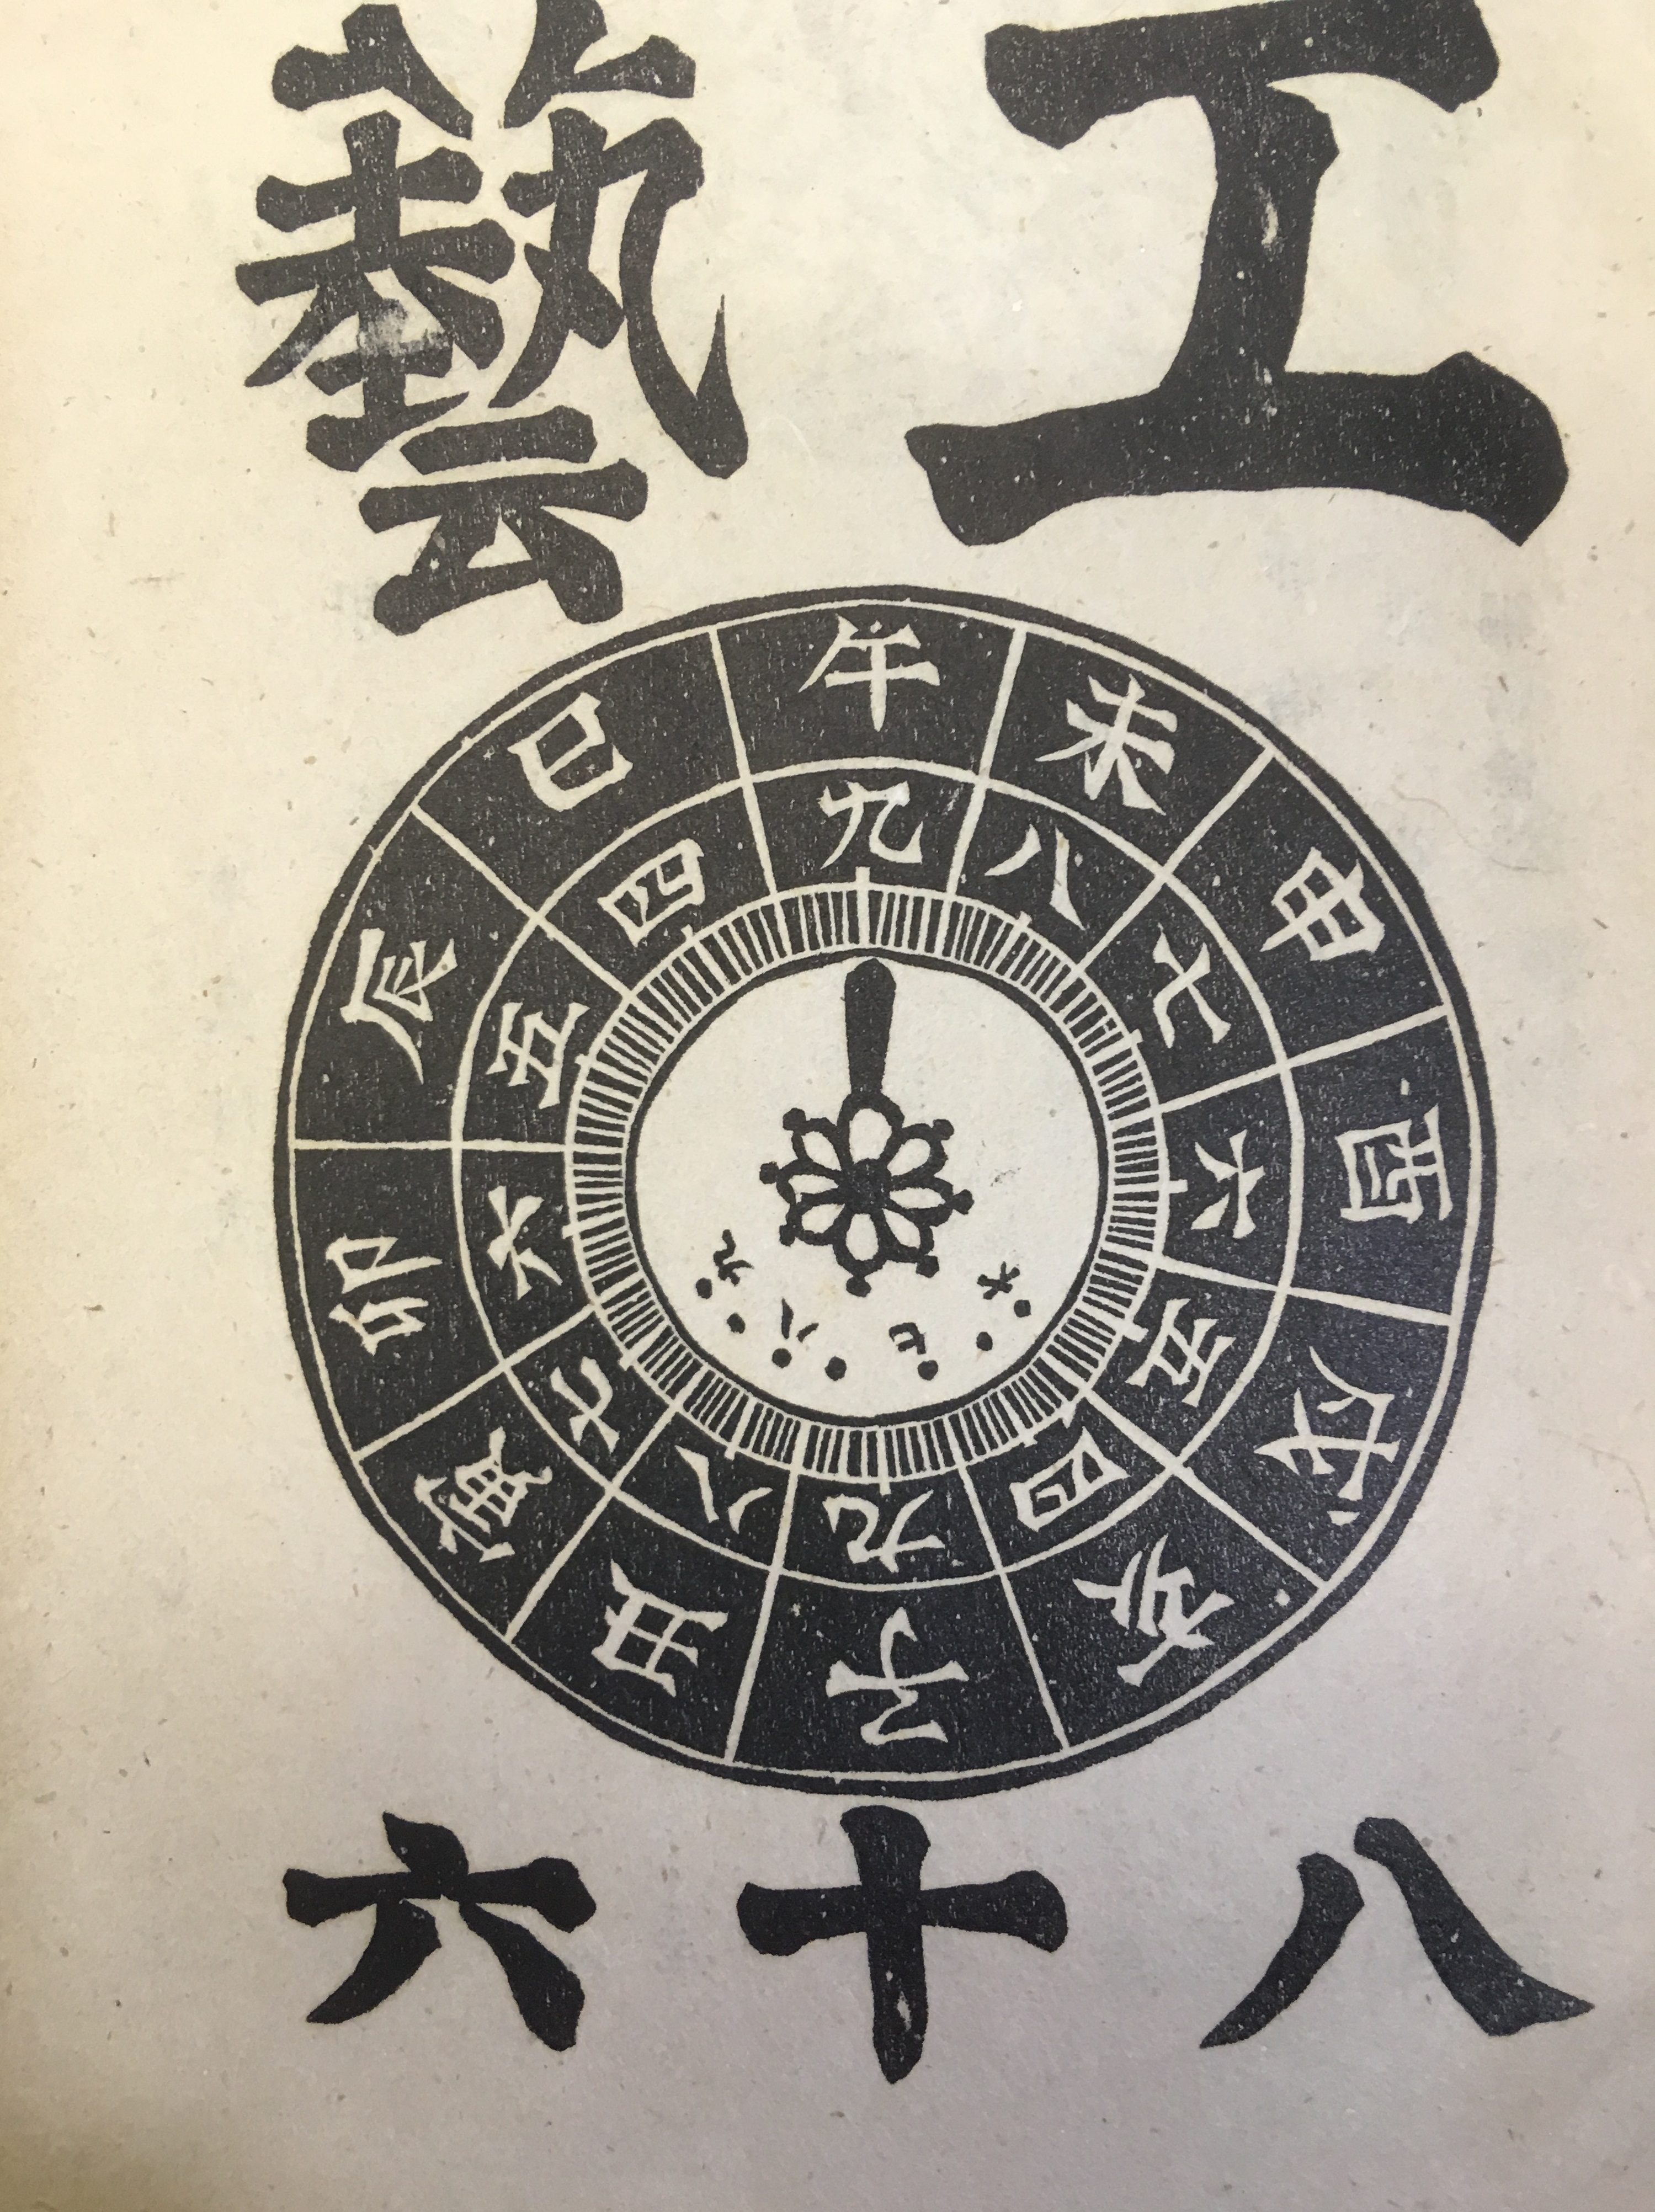 工藝
午未申酉戌亥子丑寅卯辰巳
九八七六五四九八七六五四
九八七
八十六